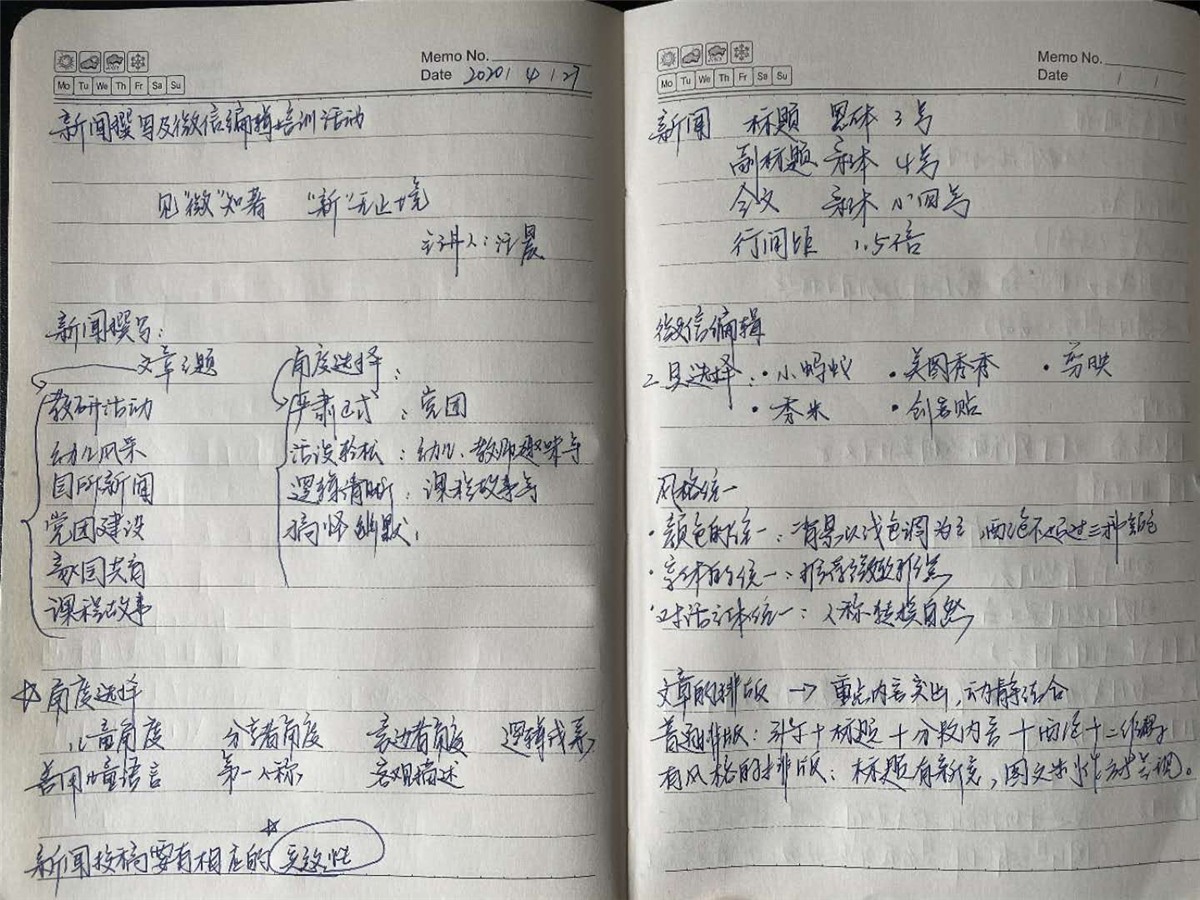 Memo No.
Mo Tu We Th Fr Sa Su
Date 2020 / 4 / 27
新闻撰写及微信编辑培训活动
见“微”知著 “新”无止境
主讲人:汪晨
新闻撰写:
文章主题 角度选择:
教研活动 严肃正式:党团
幼儿风采 活泼轻松:幼儿、教师趣味等
园所新闻 逻辑清晰:课程故事等
党团建设 搞怪幽默:
家园共育
课程故事
☆角度选择
儿童角度 分享者角度 旁边者角度 逻辑成系
善用儿童语言 第一人称 客观描述
新闻投稿要有相应的实效性
Memo No.
Mo Tu We Th Fr Sa Su
Date / /
新闻 标题 黑体 3号
副标题 宋体 4号
全文 宋体 小四号
行间距 1.5倍
微信编辑
工具选择:·小蚂蚁 ·美图秀秀 ·剪映
·秀米 ·创客贴
风格统一
·颜色的统一:背景以浅色调为主,配色不超过三种颜色
·字体的统一:推荐微软雅黑
·对话主体统一:人称转换自然
文章的排版 → 重点内容突出,动静结合
普通排版:引导+标题+分段内容+ +二维码
有风格的排版:标题有新意,图文制作 。